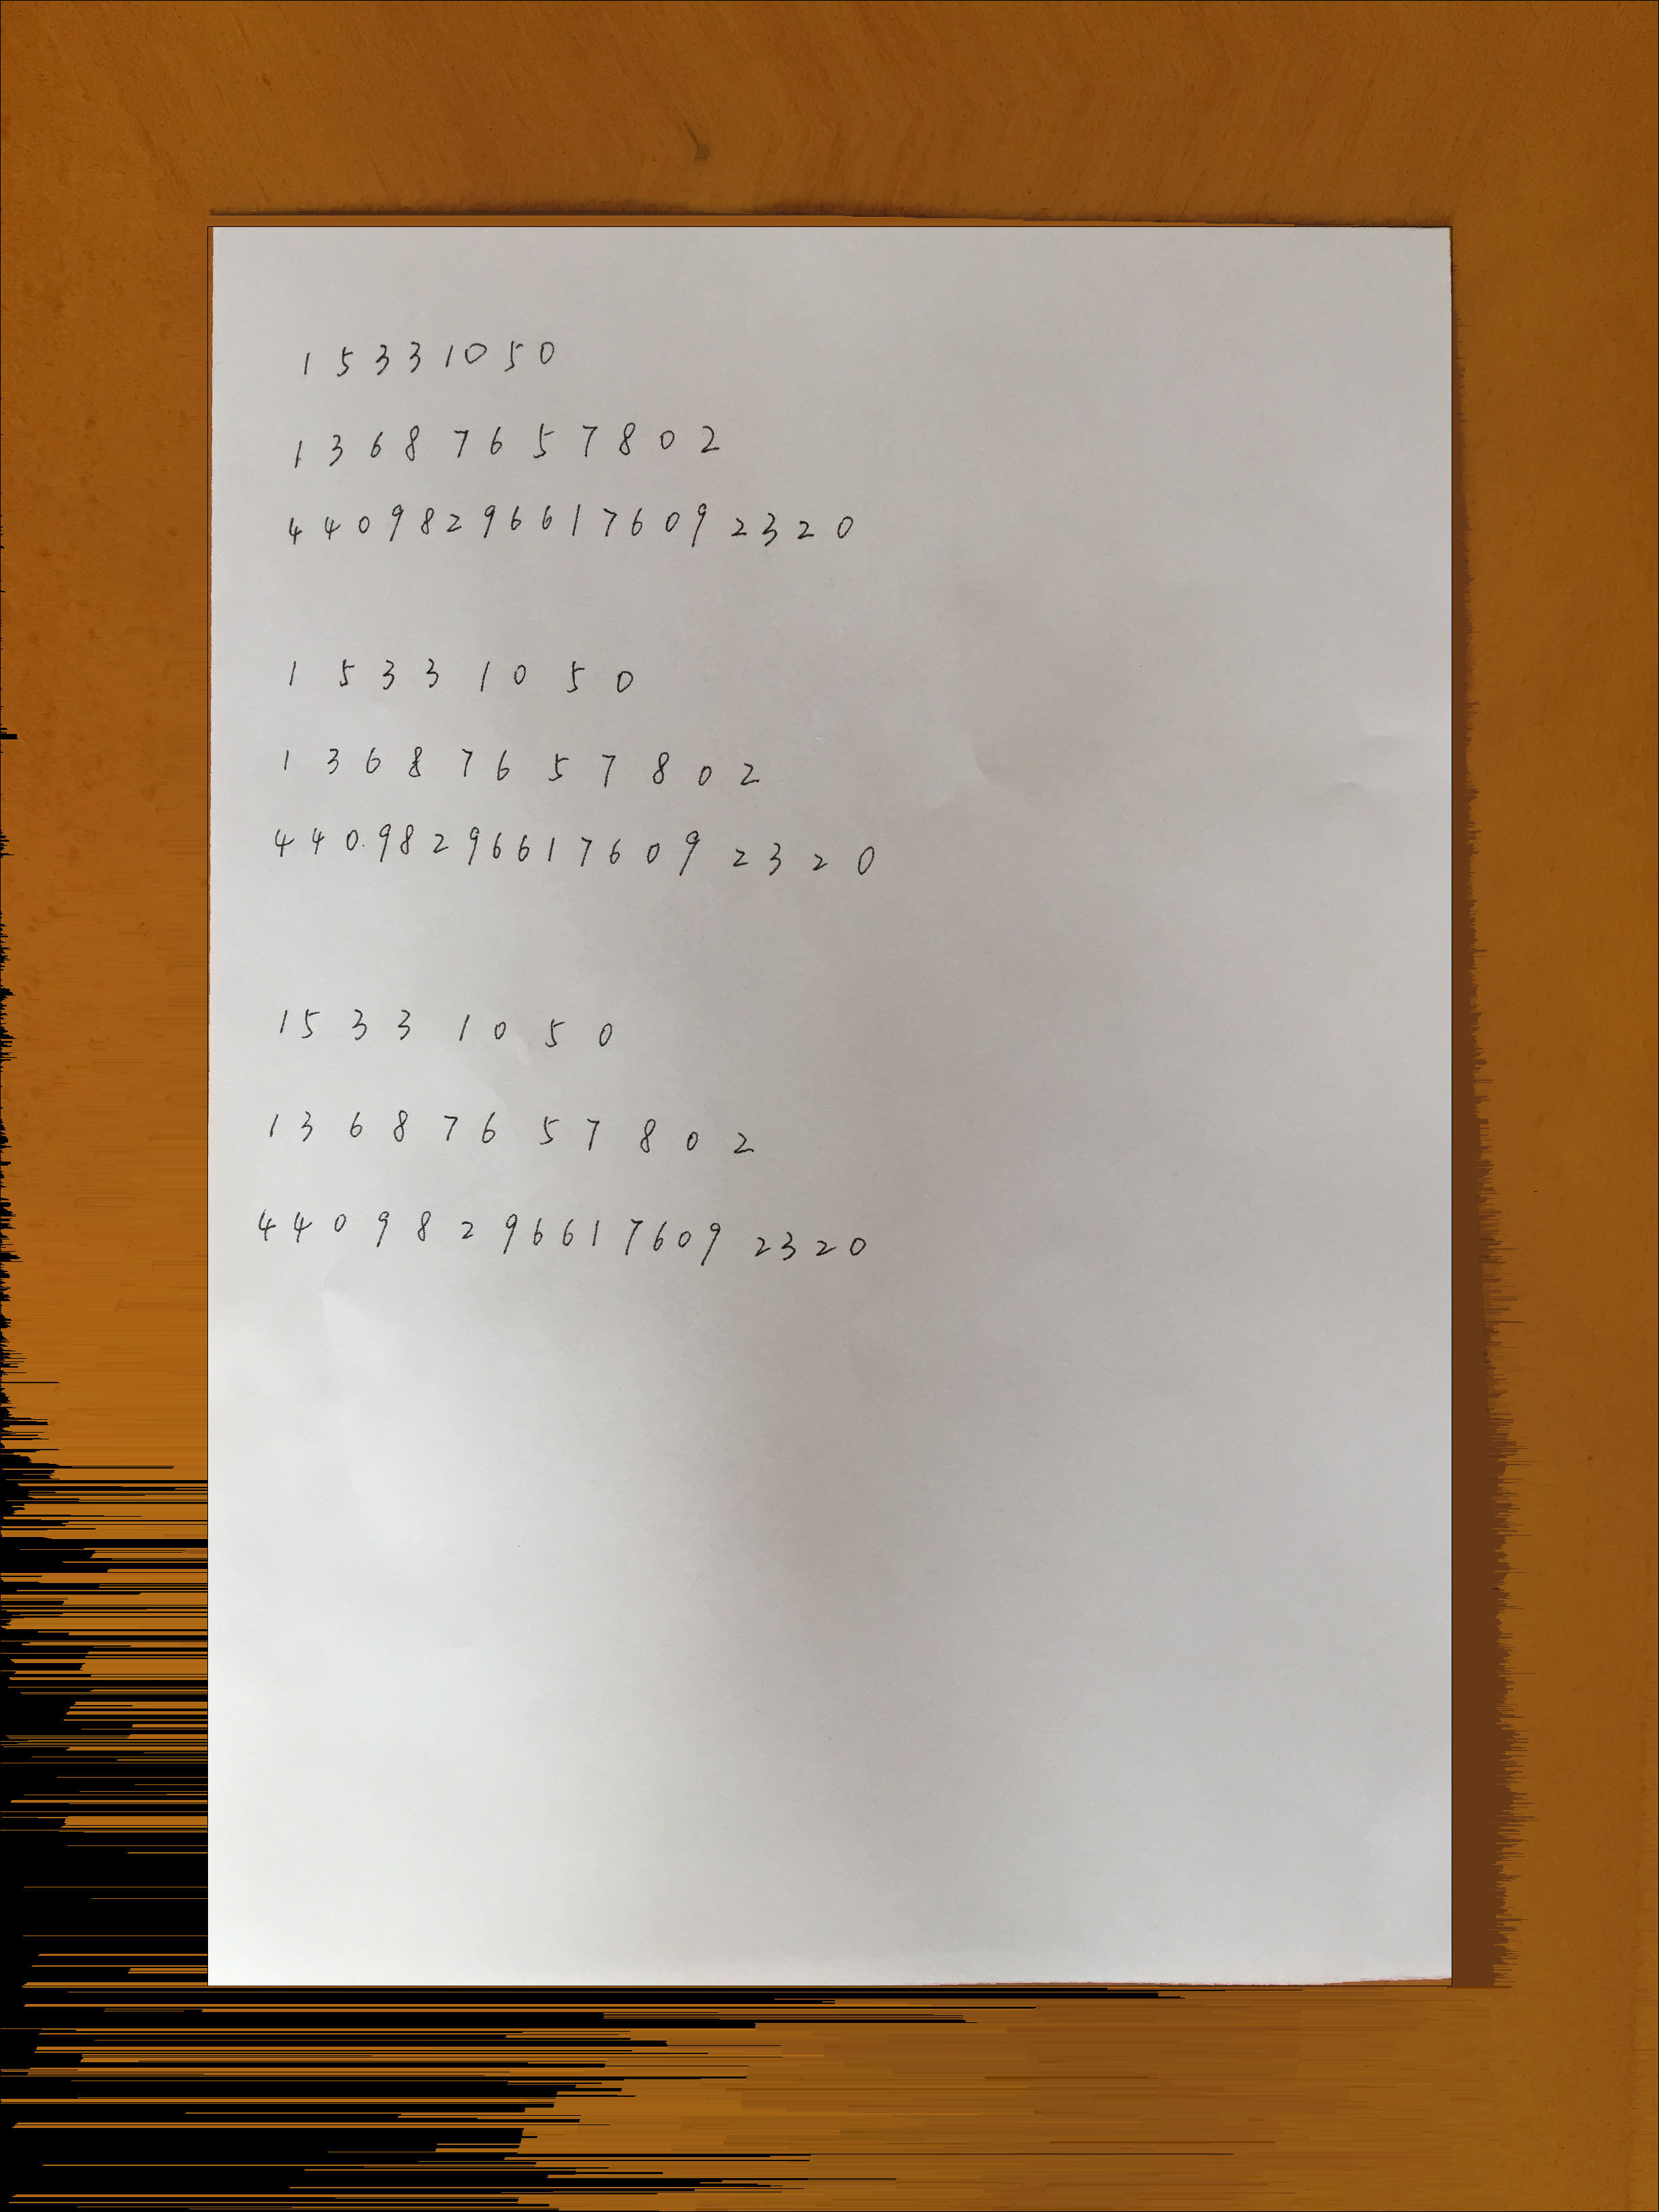 15331050
13687657802
440982966176092320
15331050
13687657802
440982966176092320
15331050
13687657802
440982966176092320